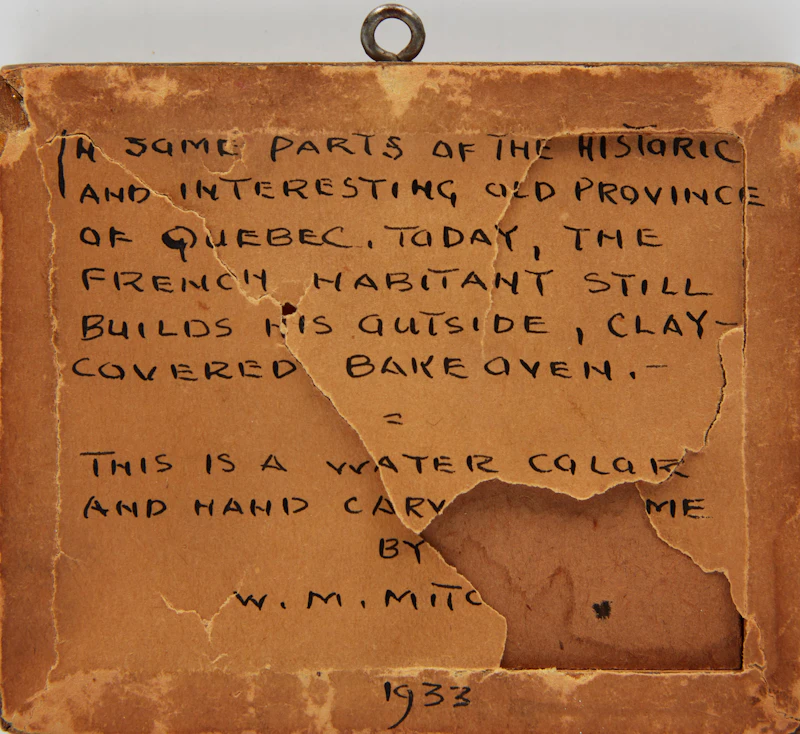 IN SOME PARTS OF THE HISTORIC
AND INTERESTING OLD PROVINCE
OF QUEBEC. TODAY, THE
FRENCH HABITANT STILL
BUILDS HIS OUTSIDE, CLAY-
COVERED BAKE OVEN.-
=
THIS IS A WATER COLOR
AND HAND CARV ME
BY
W. M. MITC
1933